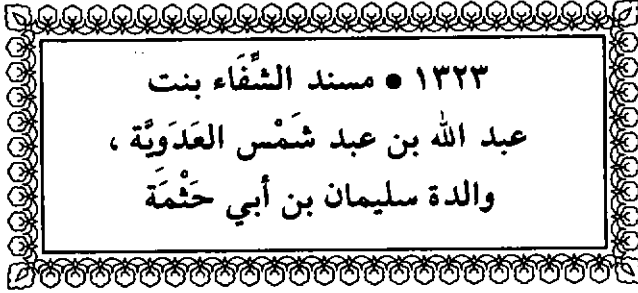 ١٣٢٣ • مسند الشِّفَاء بنت
عبد الله بن عبد شَمْس العَدَويَّة ،
والدة سليمان بن أبي حَثْمَة